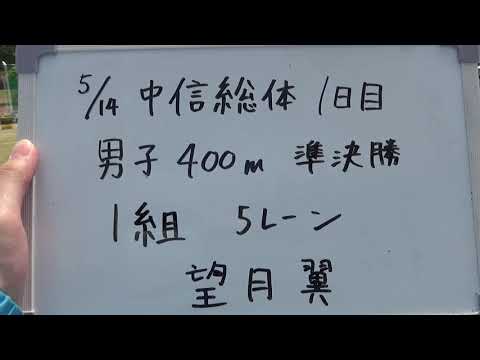 5/14 中信総体 1日目
男子 400m 準決勝
1組 5レーン
望月翼